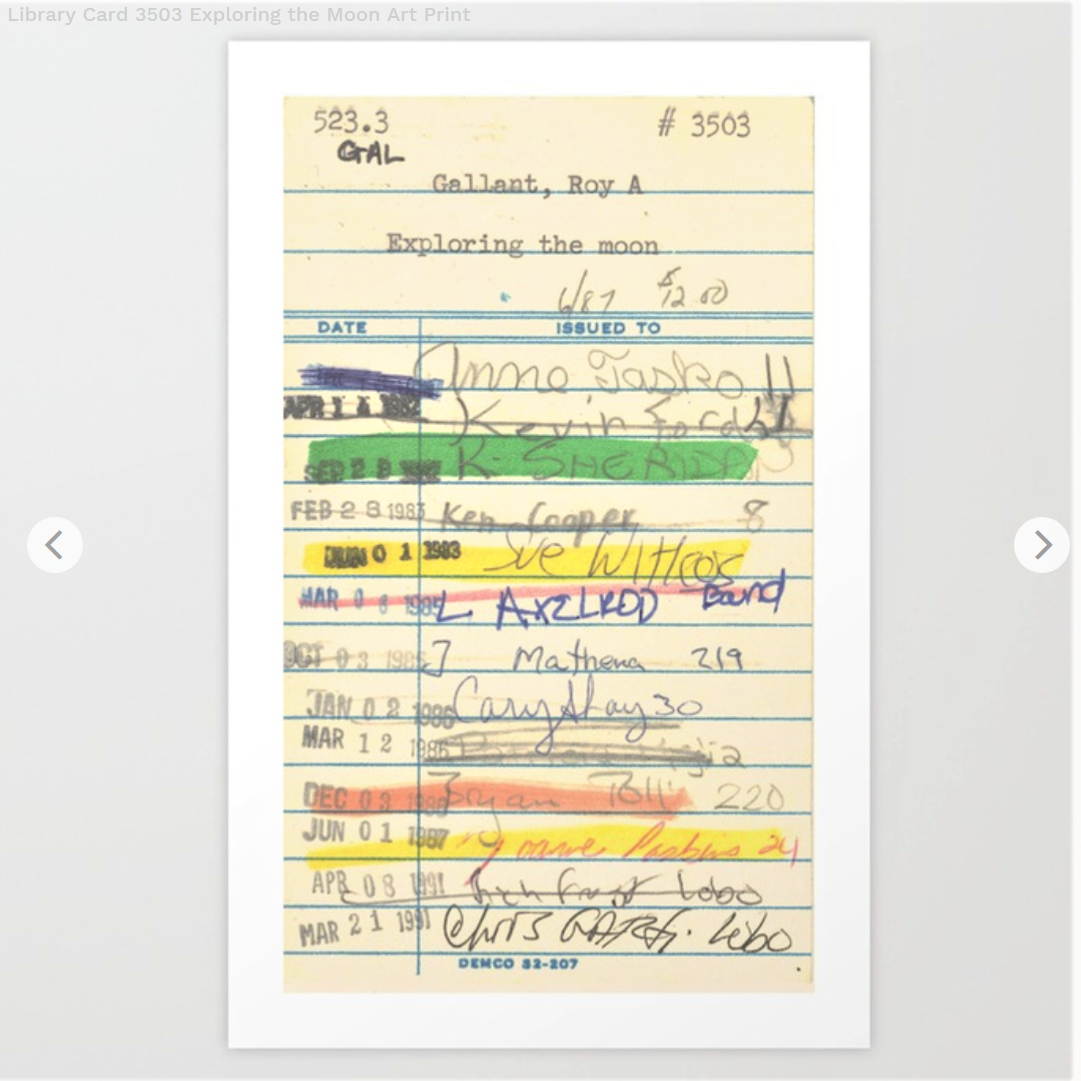 Library Card 3503 Exploring the Moon Art Print
523.3 # 3503
GAL
Gallant, Roy A
Exploring the moon
6/87 $12.00
DATE ISSUED TO
Anne Tasko 11
APR 1 1982 Kevin Ford
SEP 2 8 K. SHERIDAN
FEB 2 8 1983 Ken Cooper 8
JUN 0 1 1983 Sue Witteos
MAR 0 6 198 L AXELROD Band
OCT 03 1985 J Mathena 219
JAN 02 1986 Cary Hay 30
MAR 12 1986
DEC 03 1986 Bryan Toll 220
JUN 01 1987 24
APR 08 1991 Lobo
MAR 21 1991 Chris Lobo
DEMCO 32-207